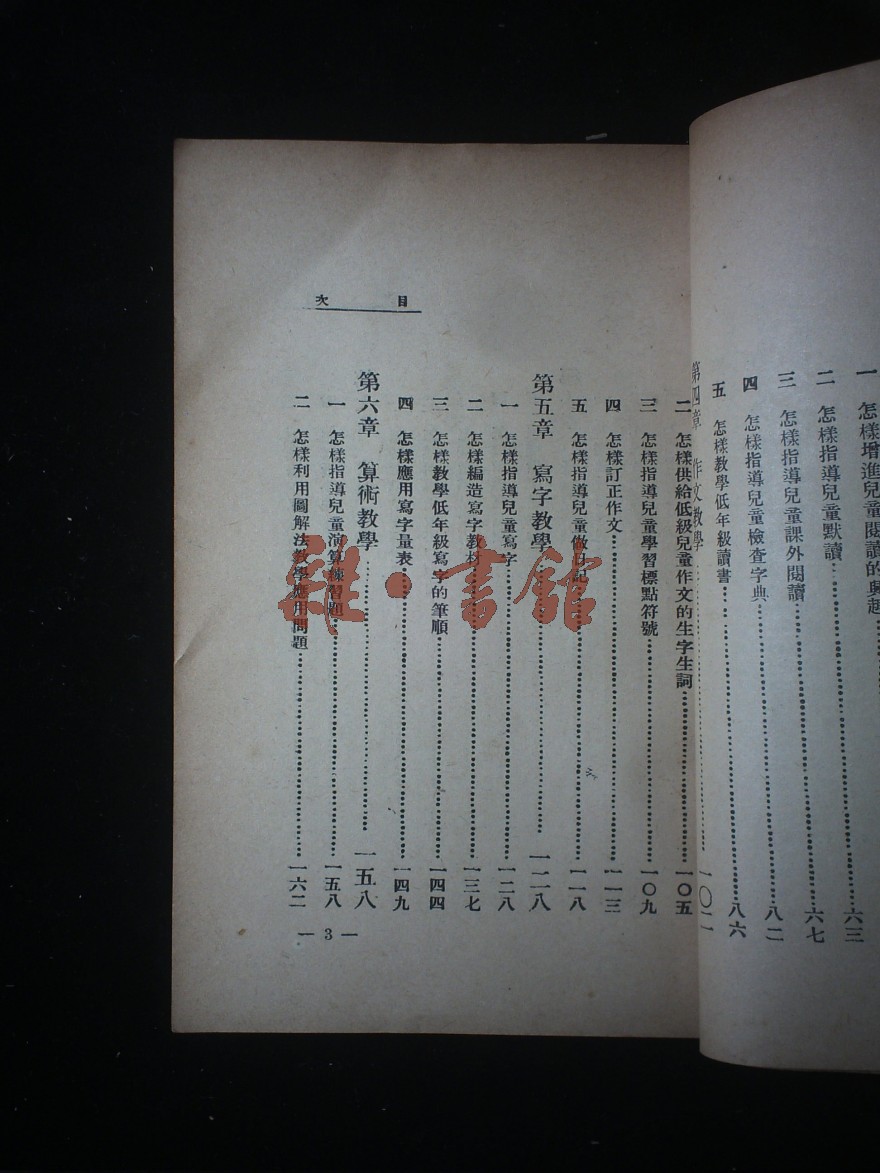 一 怎樣增進兒童閱讀的興趣……六三
二 怎樣指導兒童默讀……六七
三 怎樣指導兒童課外閱讀……八二
四 怎樣指導兒童檢查字典……八二
五 怎樣教學低年級讀書……八六
第四章 作文教學……一〇二
二 怎樣供給低級兒童作文的生字生詞……一〇五
三 怎樣指導兒童學習標點符號……一〇九
四 怎樣訂正作文……一一三
五 怎樣指導兒童做日記……一一八
第五章 寫字教學……一二八
一 怎樣指導兒童寫字……一二八
二 怎樣編造寫字教材……一三七
三 怎樣教學低年級寫字的筆順……一四四
四 怎樣應用寫字量表……一四九
第六章 算術教學……一五八
一 怎樣指導兒童演算練習題……一五八
二 怎樣利用圖解法教學應用問題……一六二
目次
— 3 —
雜·書館